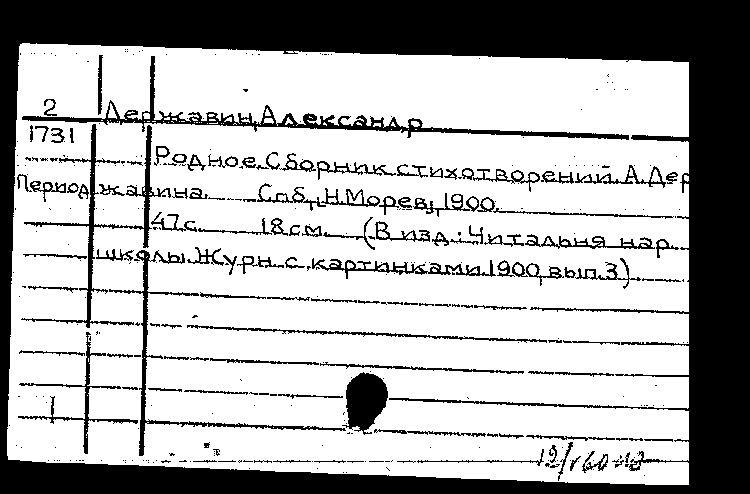 2 Державин, Александр
1731
Родное. Сборник стихотворений. А. Дер
Период жавина. Спб., Н. Морев, 1900.
47 с. 18 см. (В изд.: Читальня нар.
школы. Журн. с картинками. 1900, вып. 3)